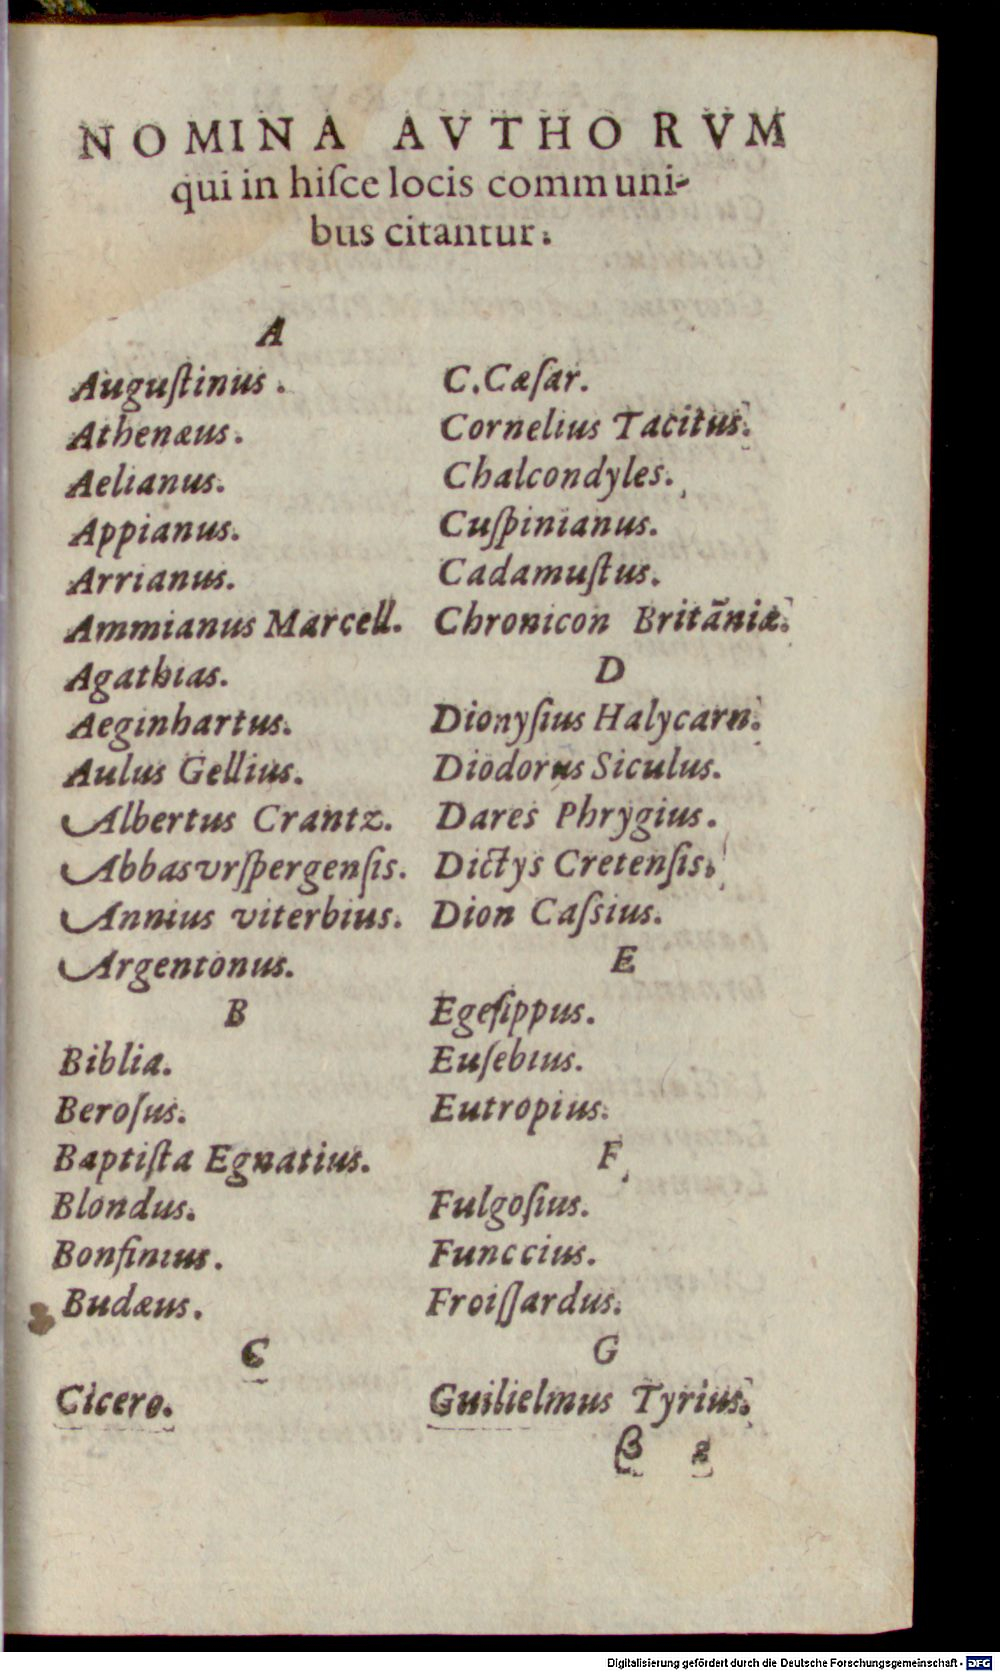 NOMINA AVTHORVM
qui in hiſce locis communi-
bus citantur.
A
Auguſtinus.
Athenæus.
Aelianus.
Appianus.
Arrianus.
Ammianus Marcell.
Agathias.
Aeginhartus.
Aulus Gellius.
Albertus Crantz.
Abbas vrſpergenſis.
Annius viterbius.
Argentonus.
B
Biblia.
Beroſus.
Baptiſta Egnatius.
Blondus.
Bonfinius.
Budæus.
C
Cicero.
C. Cæſar.
Cornelius Tacitus.
Chalcondyles.
Cuſpinianus.
Cadamuſtus.
Chronicon Britãniæ.
D
Dionyſius Halycarn.
Diodorus Siculus.
Dares Phrygius.
Dictys Cretenſis.
Dion Caſsius.
E
Egeſippus.
Euſebius.
Eutropius.
F
Fulgoſius.
Funccius.
Froiſſardus.
G
Guilielmus Tyrius.
β 2
Digitalisierung gefördert durch die Deutsche Forschungsgemeinschaft - DFG